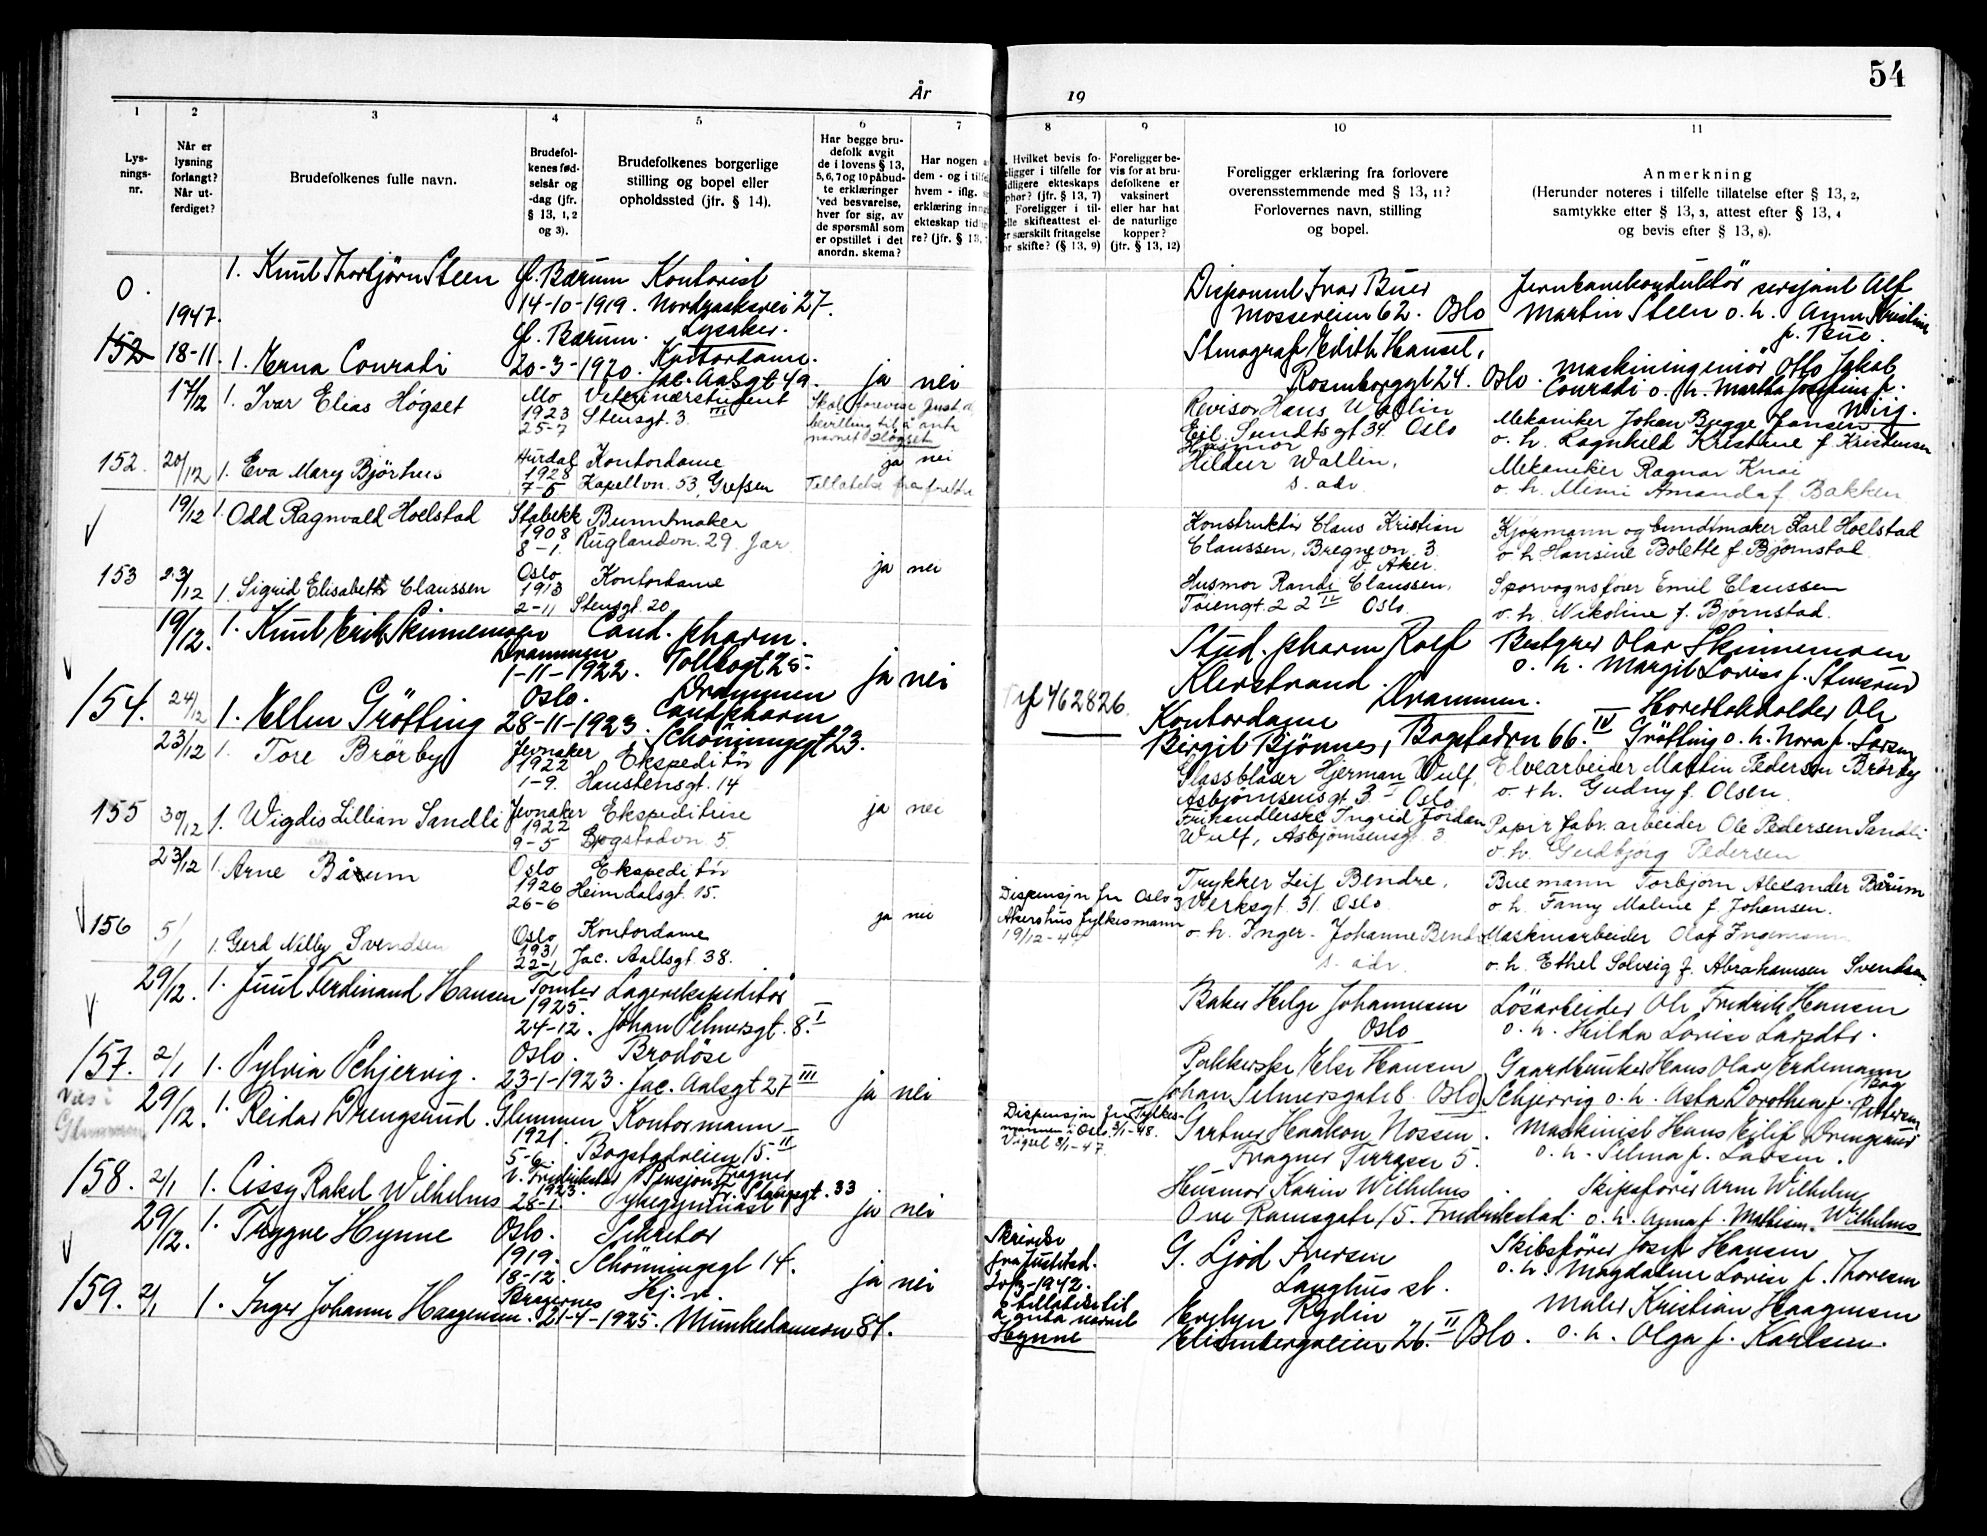 54
År 19
1 2 3 4 5 6 7 8 9 10 11
Lys-
nings-
nr.
Når er
lysning
forlangt?
Når ut-
ferdiget?
Brudefolkenes fulle navn.
Brudefol-
kenes fød-
selsår og
-dag (jfr.
§ 13, 1, 2
og 3).
Brudefolkenes borgerlige
stilling og bopel eller
opholdssted (jfr. § 14).
Har begge bru-
defolk avgit
de i lovens § 13,
5, 6, 7 og 10 påbud-
te erklæringer
ved besvarelse,
hver for sig, av
de spørsmål som
er opstillet i det
anordn. skema?
Har nogen
dem - og i tilf
hvem - iflg.
erklæring inng
ekteskap tidlig
re? (jfr. § 13,
Hvilket bevis fo-
religger i tilfelle for
tidligere ekteskaps
ophør? (jfr. § 13, 7)
Foreligger i til-
felle skifteattest el-
er særskilt fritagelse
for skifte? (§ 13, 9)
Foreligger be-
vis for at bru-
defolkene er
vaksinert
eller har hat
de naturlige
kopper?
(jfr. § 13, 12)
Foreligger erklæring fra forlovere
overensstemmende med § 13, 11?
Forlovernes navn, stilling
og bopel.
Anmerkning
(Herunder noteres i tilfelle tillatelse efter § 13, 2,
samtykke efter § 13, 3, attest efter § 13, 4
og bevis efter § 13, 8).
0.
1947.
152 18-11.
1. Knut Thorbjørn Steen
f. Bærum Kontorist
14-10-1919. Nordraaksvei 27.
Lysaker.
Disponent Ivar Buer
Mosseveien 62. Oslo
Jernbanekonduktör sersjant Alf
Martin Steen o. h. Anna Kristine
f. Bue.
1. Erna Conradi
f. Bærum. Kontordame.
20-3-1920. Jac. Aalsgt 49.
ja nei
Stenograf Edith Hansel,
Rosenborggt 24. Oslo.
Maskiningeniör Otto Jakob
Conradi o. h. Martha Josefine f.
Wiig.
17/12 1. Ivar Elias Høgset
Mo
1923
25-7
Veterinærstudent
Stensgt. 3 III
Skal forevise Just.d.
bevilling til å anta
navnet Høgset
Revisor Hans Wallin
Eil. Sundtsgt 34 Oslo
Mekaniker Johan Bugge Jansen
o. h. Ragnhild Kristine f. Kristensen
152. 20/12 1. Eva Mary Bjørhus
Hurdal
1928
7-5
Kontordame
Kapellvn. 53, Grefsen
ja nei
Tillatelse fra foreldre
Husmor
Hildur Wallin,
s. adr.
Mekaniker Ragnar Knai
o. h. Mimi Amanda f. Bakken
19/12 1. Odd Ragnvald Hoelstad
Stabekk
1908
8-1.
Buntmaker
Ruglandvn. 29. Jar
Konstruktör Claus Kristian
Claussen, Bregnevn. 3.
V. Aker.
Kjørmann og buntmaker Karl Hoelstad
o. h. Hansine Bolette f. Bjørnstad
153 23/12 1. Sigrid Elisabeth Claussen
Oslo
1913
2-11
Kontordame
Stensgt. 20
ja nei
Husmor Randi Claussen,
Töiengt. 22 IV Oslo.
Sporvognsfører Emil Claussen
o. h. Nikoline f. Bjørnstad.
19/12. 1. Knut Erik Skinnemoen
Drammen
1-11-1922.
Cand. pharm.
Tollbogt 25.
Drammen
ja nei
Stud. pharm Rolf
Klevstrand.
Drammen.
Bestyrer Olav Skinnemoen
o. h. Margit Lovise f. Stensrud
154. 24/12 1. Ellen Grötting
Oslo.
28-11-1923.
Cand pharm
Schöningsgt 23.
462826.
Kontordame
Birgit Bjönnes, Bogstadvn 66. IV
Hovedbokholder Ole
Grötting o. h. Nora f. Larsen
23/12 1. Tore Brörby
Jevnaker
1922
1-9.
Ekspeditör
Haustensgt. 14
Glassblåser Hjerman Wulf,
Asbjørnsensgt 3 I Oslo
Elvearbeider Martin Pedersen Brörby
o. h. Gudny f. Olsen
155 30/12 1. Wigdis Lillian Sandli
Jevnaker
1922
9-5
Ekspeditrise
Bogstadvn 5.
ja nei
Ingrid Jordan
Wulf, Asbjørnsensgt. 3
Papir fabr. arbeider Ole Pedersen Sandli
o. h. Gudbjörg Pedersen
23/12 1. Arne Bårum
Oslo
1926
26-6
Ekspeditör
Heimdalsgt. 15.
Dispensjon fra Oslo
Akershus Fylkesmann
19/12-47
Trykker Leif Bendre,
Verksgt. 31. Oslo
Buemann Torbjørn Alexander Bårum
o. h. Fanny Maline f Johansen.
156 5/1 1. Gerd Nilly Svendsen
Oslo
1931
22-1
Kontordame
Jac. Aallsgt 38.
ja nei
o. h. Inger-Johanne Bendre
s. adr.
Maskinarbeider Olaf Ingemann
o. h. Ethel Solveig f. Abrahamsen Svendsen
29/12. 1. Juul Ferdinand Hansen
Tomter
1925.
24-12.
Lagerekspeditör
Johan Selmersgt. 8. I
Baker Helge Johannesen
Oslo
Lösarbeider Ole Fredrik Hansen
o. h. Hilda Lovise Larsdtr.
157. 2/1 1. Sylvia Schjervig.
Oslo.
23-1-1923.
Brodöse
Jac. Aalsgt 27 III
ja nei
Pakkerske Else Hansen
Johan Selmersgate 8. Oslo
Gaardbruker Hans Olav Erdemann
Schjervig o. h. Asta Dorothea f. Pettersen
Vies i
Glemmen
29/12. 1. Reidar Drengsrud.
Glemmen
1921.
5-6.
Kontormann
Bogstadveien 15. II
Dispensjon fra Fylkes-
mannen i Oslo. 3/1-48.
Vigsel 3/1-47
Gartner Haakon Nossen.
Frogner Terrasse 5.
Maskinist Hans Eilif Drengsrud
o. h. Selma f. Larsen.
158. 2/1 1. Cissy Rakel Wilhelms
V. Fredrikstad
1923.
28-1.
Pensjon Frogner
Fr. Stangsgt. 33
Sykegymnast
ja nei
Husmor Karin Wilhelms
Ove Ramsgate 15. Fredrikstad
Skipsförer Arne Wilhelm
o. h. Anna f. Mathisen. Wilhelms
29/12. 1. Trygve Hynne
Oslo.
1919.
18-12.
Sekretær
Schöningsgt 14.
Skrivelse
fra Justisd.
1942.
tillatelse til
å anta navnet
Hynne
G. Ljöd Iversen
Langhus st.
Skibsförer Josef Hansen
o. h. Magdalene Lovise f. Thoresen
159. 2/1 1. Inger Johanne Haagensen.
Bragernes
21-4-1925.
Hj. v.
Munkedamsvn 84.
ja nei
Evelyn Rydin
Elisenbergveien 26. II Oslo.
Maler Kristian Haagensen
o. h. Olga f. Karlsen.